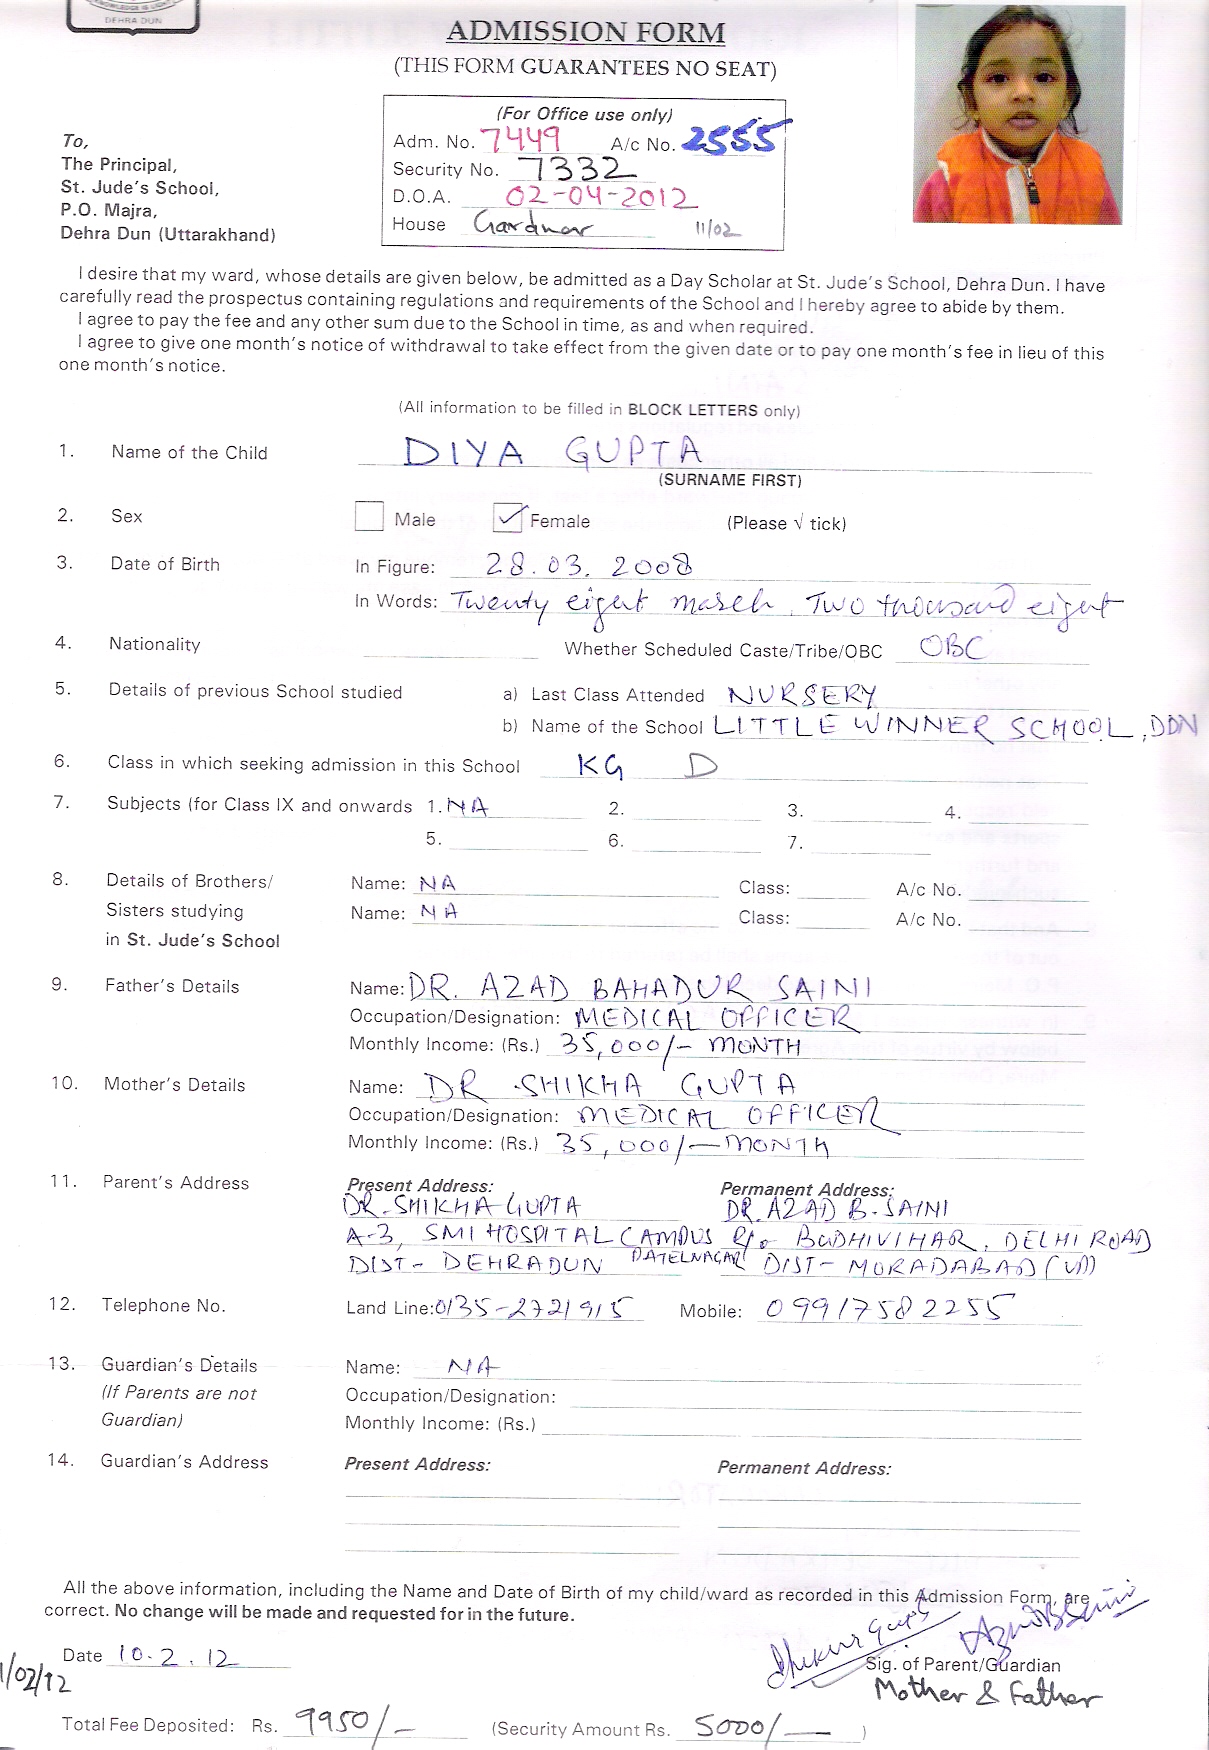 KNOWLEDGE IS LIGHT
DEHRA DUN
ADMISSION FORM
(THIS FORM GUARANTEES NO SEAT)
(For Office use only)
Adm. No. 7449 A/c No. 2555
Security No. 7332
D.O.A. 02-04-2012
House Gardnar 11/02
To,
The Principal,
St. Jude's School,
P.O. Majra,
Dehra Dun (Uttarakhand)
I desire that my ward, whose details are given below, be admitted as a Day Scholar at St. Jude's School, Dehra Dun. I have
carefully read the prospectus containing regulations and requirements of the School and I hereby agree to abide by them.
I agree to pay the fee and any other sum due to the School in time, as and when required.
I agree to give one month's notice of withdrawal to take effect from the given date or to pay one month's fee in lieu of this
one month's notice.
(All information to be filled in BLOCK LETTERS only)
1. Name of the Child DIYA GUPTA
(SURNAME FIRST)
2. Sex Male Female (Please √ tick)
3. Date of Birth In Figure: 28.03.2008
In Words: Twenty eight march, Two thousand eight
4. Nationality Whether Scheduled Caste/Tribe/OBC OBC
5. Details of previous School studied a) Last Class Attended NURSERY
b) Name of the School LITTLE WINNER SCHOOL, DDN
6. Class in which seeking admission in this School KG D
7. Subjects (for Class IX and onwards 1. NA 2. 3. 4.
5. 6. 7.
8. Details of Brothers/ Name: NA Class: A/c No.
Sisters studying Name: NA Class: A/c No.
in St. Jude's School
9. Father's Details Name: DR. AZAD BAHADUR SAINI
Occupation/Designation: MEDICAL OFFICER
Monthly Income: (Rs.) 35,000/- MONTH
10. Mother's Details Name: DR SHIKHA GUPTA
Occupation/Designation: MEDICAL OFFICER
Monthly Income: (Rs.) 35,000/- MONTH
11. Parent's Address Present Address: Permanent Address:
DR. SHIKHA GUPTA DR. AZAD B. SAINI
A-3, SMI HOSPITAL CAMPUS R/o BUDHIVIHAR, DELHI ROAD
DIST- DEHRADUN PATELNAGAR DIST- MORADABAD (UP)
12. Telephone No. Land Line: 0135-2721915 Mobile: 09917582255
13. Guardian's Details Name: NA
(If Parents are not Occupation/Designation:
Guardian) Monthly Income: (Rs.)
14. Guardian's Address Present Address: Permanent Address:
All the above information, including the Name and Date of Birth of my child/ward as recorded in this Admission Form, are
correct. No change will be made and requested for in the future.
Date 10.2.12
Sig. of Parent/Guardian
Mother & Father
Total Fee Deposited: Rs. 9950/- (Security Amount Rs. 5000/- )